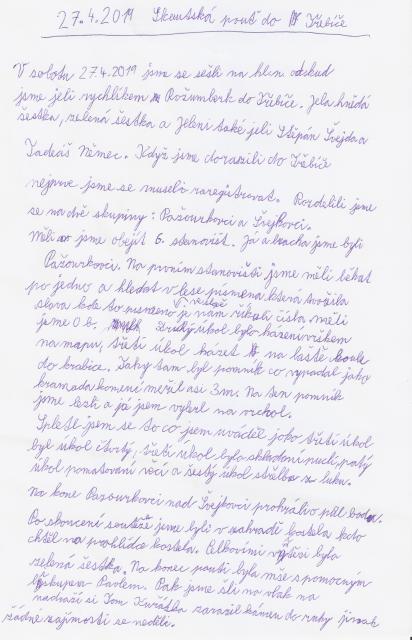 27.4.2019 Skautská pouť do Třebíče
V sobotu 27.4.2019 jsme se sešli na hlem odskud
jsme jeli rychlíkem Rožumberk do Třebíče. Jela hnědá
šestka, zelená šestka a Jeleni také jeli Štěpán Švejda a
Tadeáš Němec. Když jsme dorazili do Třebíče
nejprve jsme se museli zaregistrovat. Rozdělili jsme
se na dvě skupiny: Pažourkovci a Švejkovci.
Měli jsme obejít 6. stanovišť. Já a bracha jsme byli
Pažourkovci. Na prvním stanovišti jsme měli běhat
po jedno a hledat v lese písmena která tvořila
slova kde to písmeno je nám říkali čísla měli
jsme 0 b. Druhý úkol bylo házení víčkem
na mapu, třetí úkol házet na laště koule
do krabice. Taky tam byl pomník co vypadal jako
hromada kamení měřil asi 3m. Na ten pomník
jsme lezli a já jsem vylezl na vrchol.
Spletl jsem se to co jsem uváděl jako třetí úkol
byl úkol čtvrtý, třetí úkol bylo skládání puclí, pátý
úkol pamatování věcí a šestý úkol střelba z luku.
Na konec Pažourkovci nad Švejkovci prohrálivo půl bodu.
Po skončení soutěže jsme byli v zahradě kostela kdo
chtěl na prohlídce kostela. Celkovími výtězi byla
zelená šestka. Na konec pouti byla mše s pomocným
biskupem Pavlem. Pak jsme šli na vlak na
nádraží si Tom Kuřátka zarazil kámen do ruky jinak
žádné zajímosti se neděli.